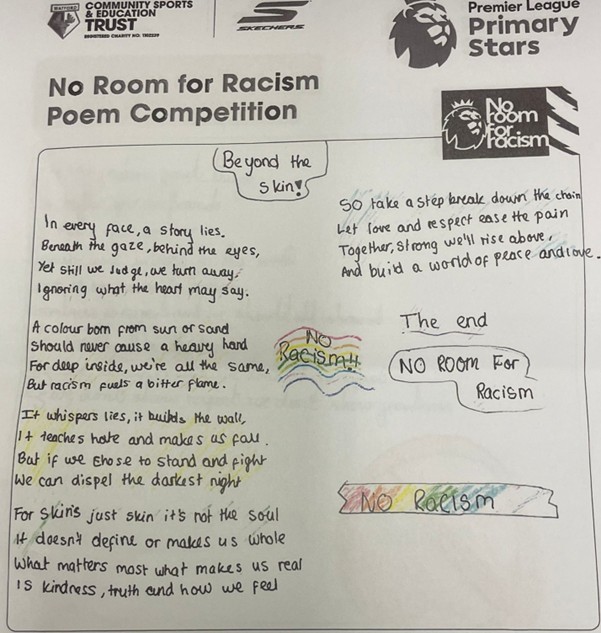 WATFORD
COMMUNITY SPORTS
& EDUCATION
TRUST
REGISTERED CHARITY NO: 1102239
SKECHERS
Premier League
Primary
Stars
No Room for Racism
Poem Competition
No
Room
For
Racism
Beyond the
skin!
In every face, a story lies.
Beneath the gaze, behind the eyes,
Yet still we Judge, we turn away.
Ignoring what the heart may say.
A colour born from sun or sand
Should never cause a heavy hand
For deep inside, we're all the same,
But racism fuels a bitter flame.
It whispers lies, it builds the wall,
It teaches hate and makes us fall.
But if we chose to stand and fight
We can dispel the darkest night
For skin's just skin it's not the soul
It doesn't define or makes us whole
What matters most what makes us real
Is kindness, truth and how we feel
So take a step break down the chain
Let love and respect ease the pain
Together, strong we'll rise above.
And build a world of peace and love.
The end
NO
Racism!!
NO ROOM For
Racism
NO Racism